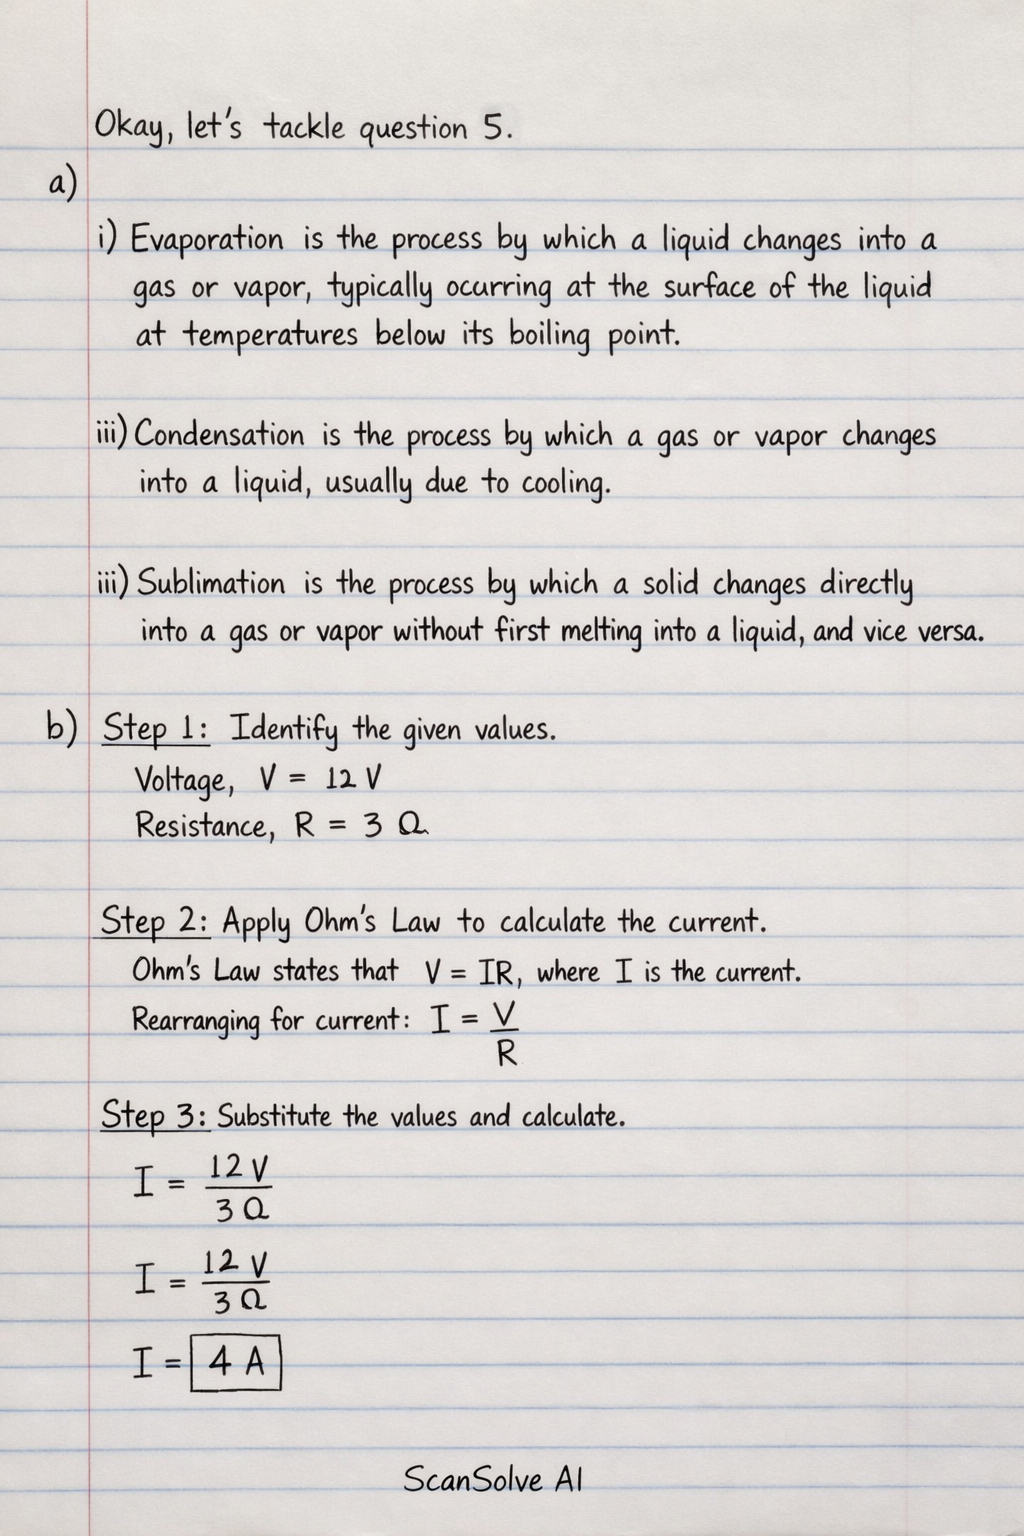 Okay, let's tackle question 5.
a)
i) Evaporation is the process by which a liquid changes into a
gas or vapor, typically ocurring at the surface of the liquid
at temperatures below its boiling point.
iii) Condensation is the process by which a gas or vapor changes
into a liquid, usually due to cooling.
iii) Sublimation is the process by which a solid changes directly
into a gas or vapor without first melting into a liquid, and vice versa.
b) Step 1: Identify the given values.
Voltage, V = 12 V
Resistance, R = 3 Ω
Step 2: Apply Ohm's Law to calculate the current.
Ohm's Law states that V = IR, where I is the current.
Rearranging for current: I = V/R
Step 3: Substitute the values and calculate.
I = 12 V/3 Ω
I = 12 V/3 Ω
I = 4 A
ScanSolve AI